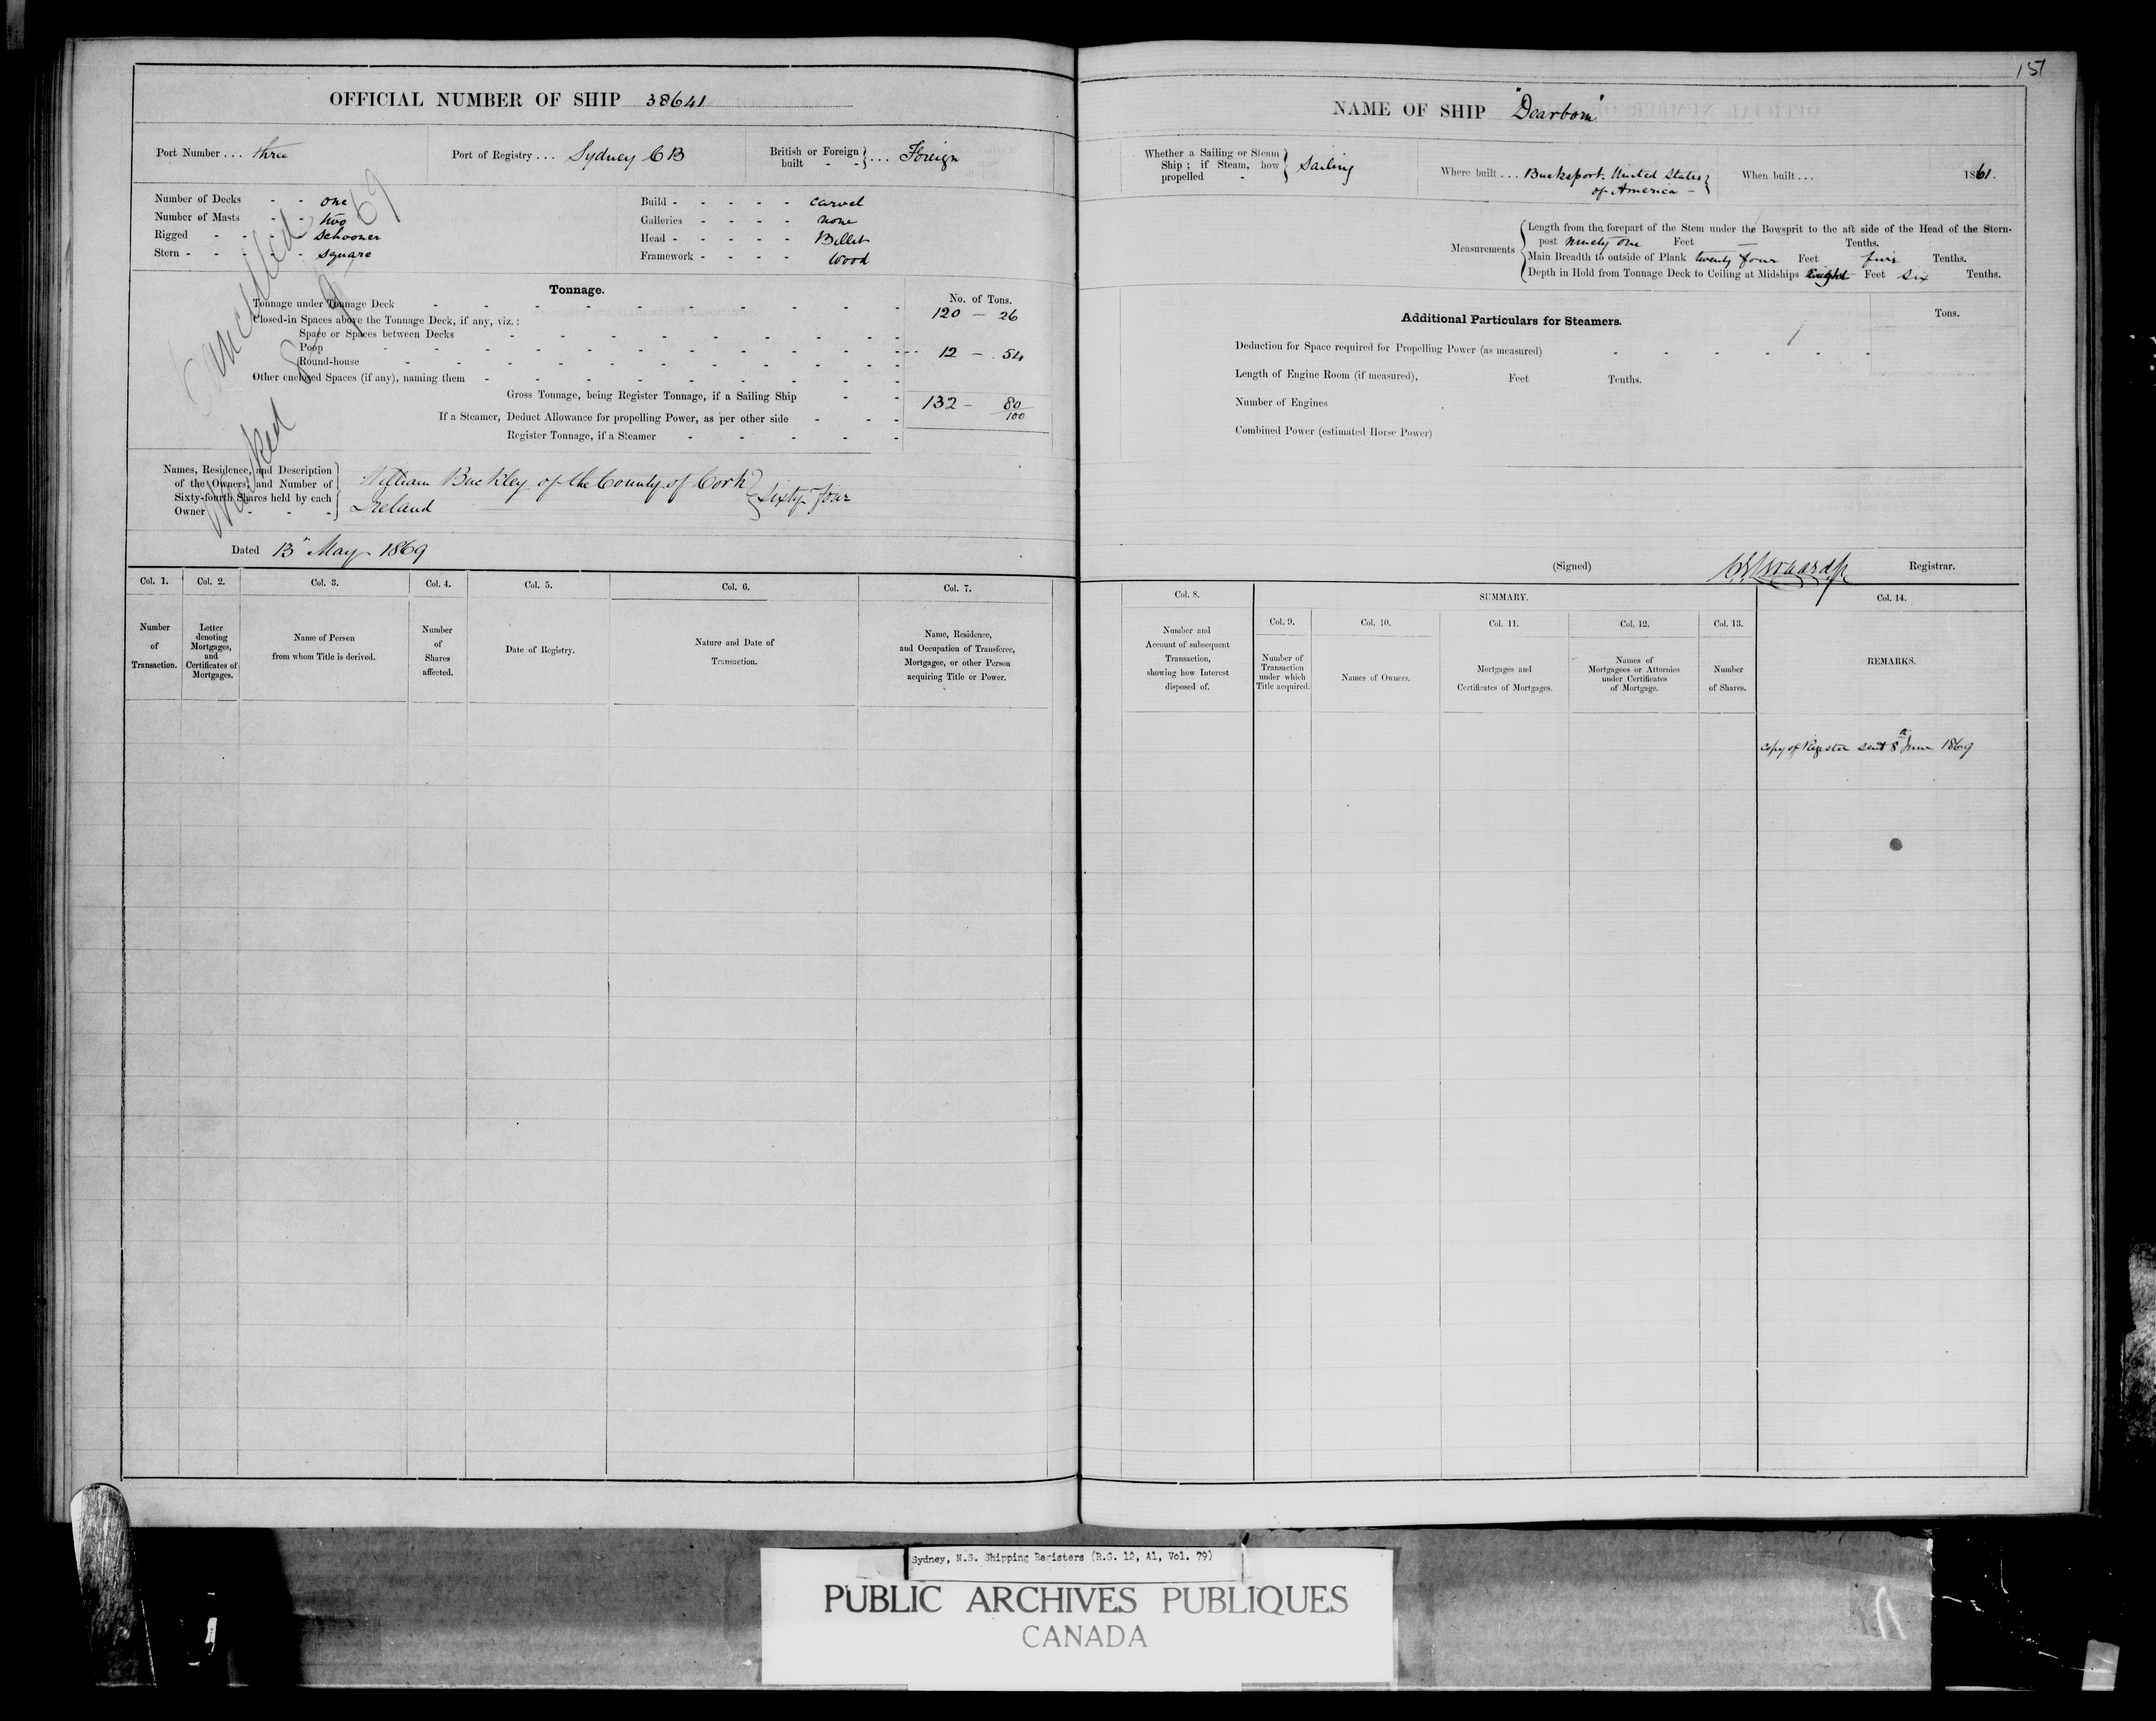 151
OFFICIAL NUMBER OF SHIP 38641
Port Number ... three
Port of Registry ... Sydney C B
British or Foreign built - - } ... Foreign
Number of Decks - - one
Number of Masts - - two
Rigged - - - schooner
Stern - - - - square
Build - - - - - carvel
Galleries - - - - none
Head - - - - - Billet
Framework - - - - Wood
Cancelled
Wrecked
69
Tonnage.
No. of Tons.
Tonnage under Tonnage Deck 120 — 26
Closed-in Spaces above the Tonnage Deck, if any, viz.:
Space or Spaces between Decks
Poop 12 — . 54
Round-house
Other enclosed Spaces (if any), naming them
Gross Tonnage, being Register Tonnage, if a Sailing Ship 132 — 80/100
If a Steamer, Deduct Allowance for propelling Power, as per other side
Register Tonnage, if a Steamer
Names, Residence, and Description
of the Owners, and Number of
Sixty-fourth Shares held by each
Owner - - -
William Buckley of the County of Cork
Ireland
} Sixty four
Dated 13" May 1869
Col. 1.
Number of Transaction.
Col. 2.
Letter denoting Mortgages, and Certificates of Mortgages.
Col. 3.
Name of Person from whom Title is derived.
Col. 4.
Number of Shares affected.
Col. 5.
Date of Registry.
Col. 6.
Nature and Date of Transaction.
Col. 7.
Name, Residence, and Occupation of Transferee, Mortgagee, or other Person acquiring Title or Power.
NAME OF SHIP "Dearborn"
Whether a Sailing or Steam
Ship; if Steam, how
propelled -
} Sailing
Where built ... Bucksport. United States
of America —
When built ... 1861.
Measurements
Length from the forepart of the Stem under the Bowsprit to the aft side of the Head of the Stern-
post ninety one Feet — Tenths.
Main Breadth to outside of Plank twenty four Feet Tenths.
Depth in Hold from Tonnage Deck to Ceiling at Midships Eight Feet six Tenths.
Additional Particulars for Steamers.
Tons.
Deduction for Space required for Propelling Power (as measured)
Length of Engine Room (if measured), Feet Tenths.
Number of Engines
Combined Power (estimated Horse Power)
(Signed) Registrar.
Col. 8.
Number and Account of subsequent Transaction, showing how Interest disposed of.
SUMMARY.
Col. 9.
Number of Transaction under which Title acquired.
Col. 10.
Names of Owners.
Col. 11.
Mortgages and Certificates of Mortgages.
Col. 12.
Names of Mortgagees or Attornies under Certificates of Mortgage.
Col. 13.
Number of Shares.
Col. 14.
REMARKS.
Copy of Register sent 8th June 1869
Sydney, N.S. Shipping Registers (R.G. 12, A1, Vol. 79)
PUBLIC ARCHIVES PUBLIQUES
CANADA